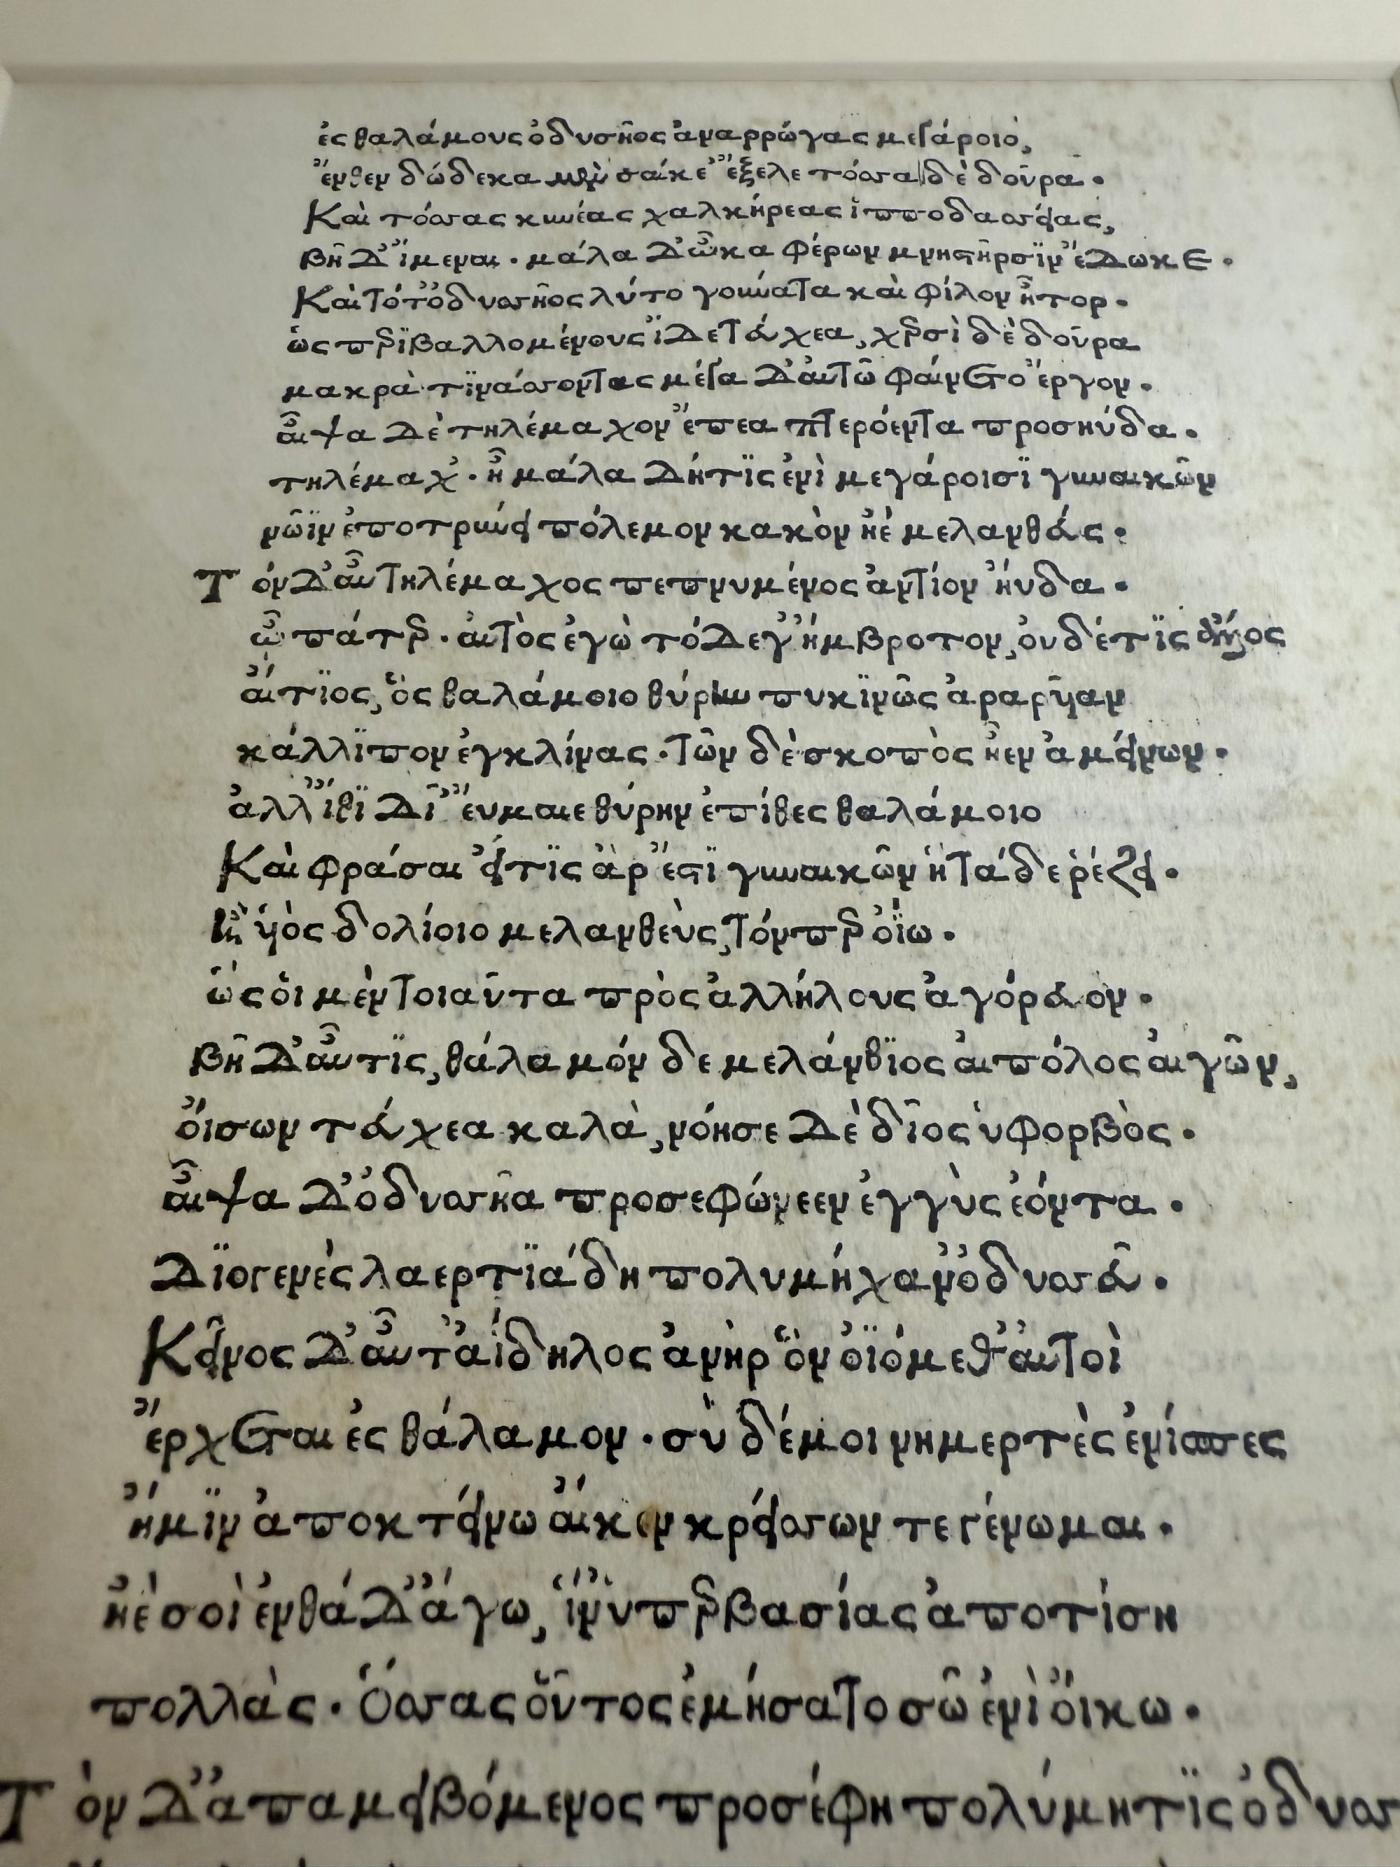 ἐς θαλάμους ὀδυσῆος ἀναρρῶγας μεγάροιο,
ἔνθεν δώδεκα μὲν σάκε' ἔξελε τόσσα δὲ δοῦρα.
Καὶ τόσσας κυνέας χαλκήρεας ἱπποδασείας,
βῆ Δ' ἴμεναι. μάλα Δ' ὦκα φέρων μνηστῆρσϊν ἔΔωκε.
Καὶ τότ' ὀδυσσῆος λύτο γούνατα καὶ φίλον ἦτορ.
ὡς περϊβαλλομένους ἴΔε τεύχεα, χερσὶ δὲ δοῦρα
μακρὰ τϊνάσσοντας μέγα Δ' αυτῶ φαίνετο ἔργον.
αἶψα Δὲ τηλέμαχον ἔπεα πτερόεντα προσηύδα.
τηλέμαχ'. ἦ μάλα Δήτϊς ἐνὶ μεγάροισϊ γυναικῶν
νῶϊν ἐποτρύνει πόλεμον κακὸν ἠὲ μελανθεύς.
Τόν Δ' αὖ Τηλέμαχος πεπνυμένος ἀντίον ἠύδα.
ὦ πάτερ. αὐτὸς ἐγὼ τόΔε γ' ἤμβροτον, οὐδέ τϊς ἄλλος
αἴτϊος, ὃς θαλάμοιο θύρην πυκϊνῶς ἀραρυῖαν
κάλλϊπον ἐγκλίνας. τῶν δὲ σκοπὸς ἦεν ἀμείνων.
ἀλλ' ἴθϊ Δῖ' ἔυμαιε θύρην ἐπίθες θαλάμοιο
Καὶ φράσαι εἴ τϊς ἀρ' ἐστϊ γυναικῶν ἣ τάδε ῥέζει.
ἢ υἱὸς δολίοιο μελανθεὺς, τόν περ ὀΐω.
ὣς ὁι μὲν τοιαῦτα πρὸς ἀλλήλους ἀγόρευον.
βῆ Δ' αὖτϊς, θάλαμόν δε μελάνθϊος ἀιπόλος ἀιγῶν,
ὄισων τεύχεα καλὰ, νόησε Δὲ δῖος ὑφορβὸς.
αἶψα Δ' ὀδυσσῆα προσεφώνεεν ἐγγὺς ἐόντα.
Δϊογενὲς λαερτϊάδη πολυμήχαν' ὀδυσσεῦ.
Κεῖνος Δ' αὖτ' ἀίδηλος ἀνὴρ ὃν ὀϊόμεθ' ἀυτοὶ
ἔρχεται ἐς θάλαμον. σὺ δέ μοι νημερτὲς ἐνίσπες
ἤ μϊν ἀποκτείνω ἄι κεν κρείσσων τε γένωμαι.
ἠὲ σοὶ ἐνθά Δ' ἄγω, ἵν' ὑπερβασίας ἀποτίση
πολλὰς. ὅσσας οὗτος ἐμήσατο σῶ ἐνὶ ὄικω.
Τὸν Δ' ἀπαμειβόμενος προσέφη πολύμητϊς ὀδυσσ